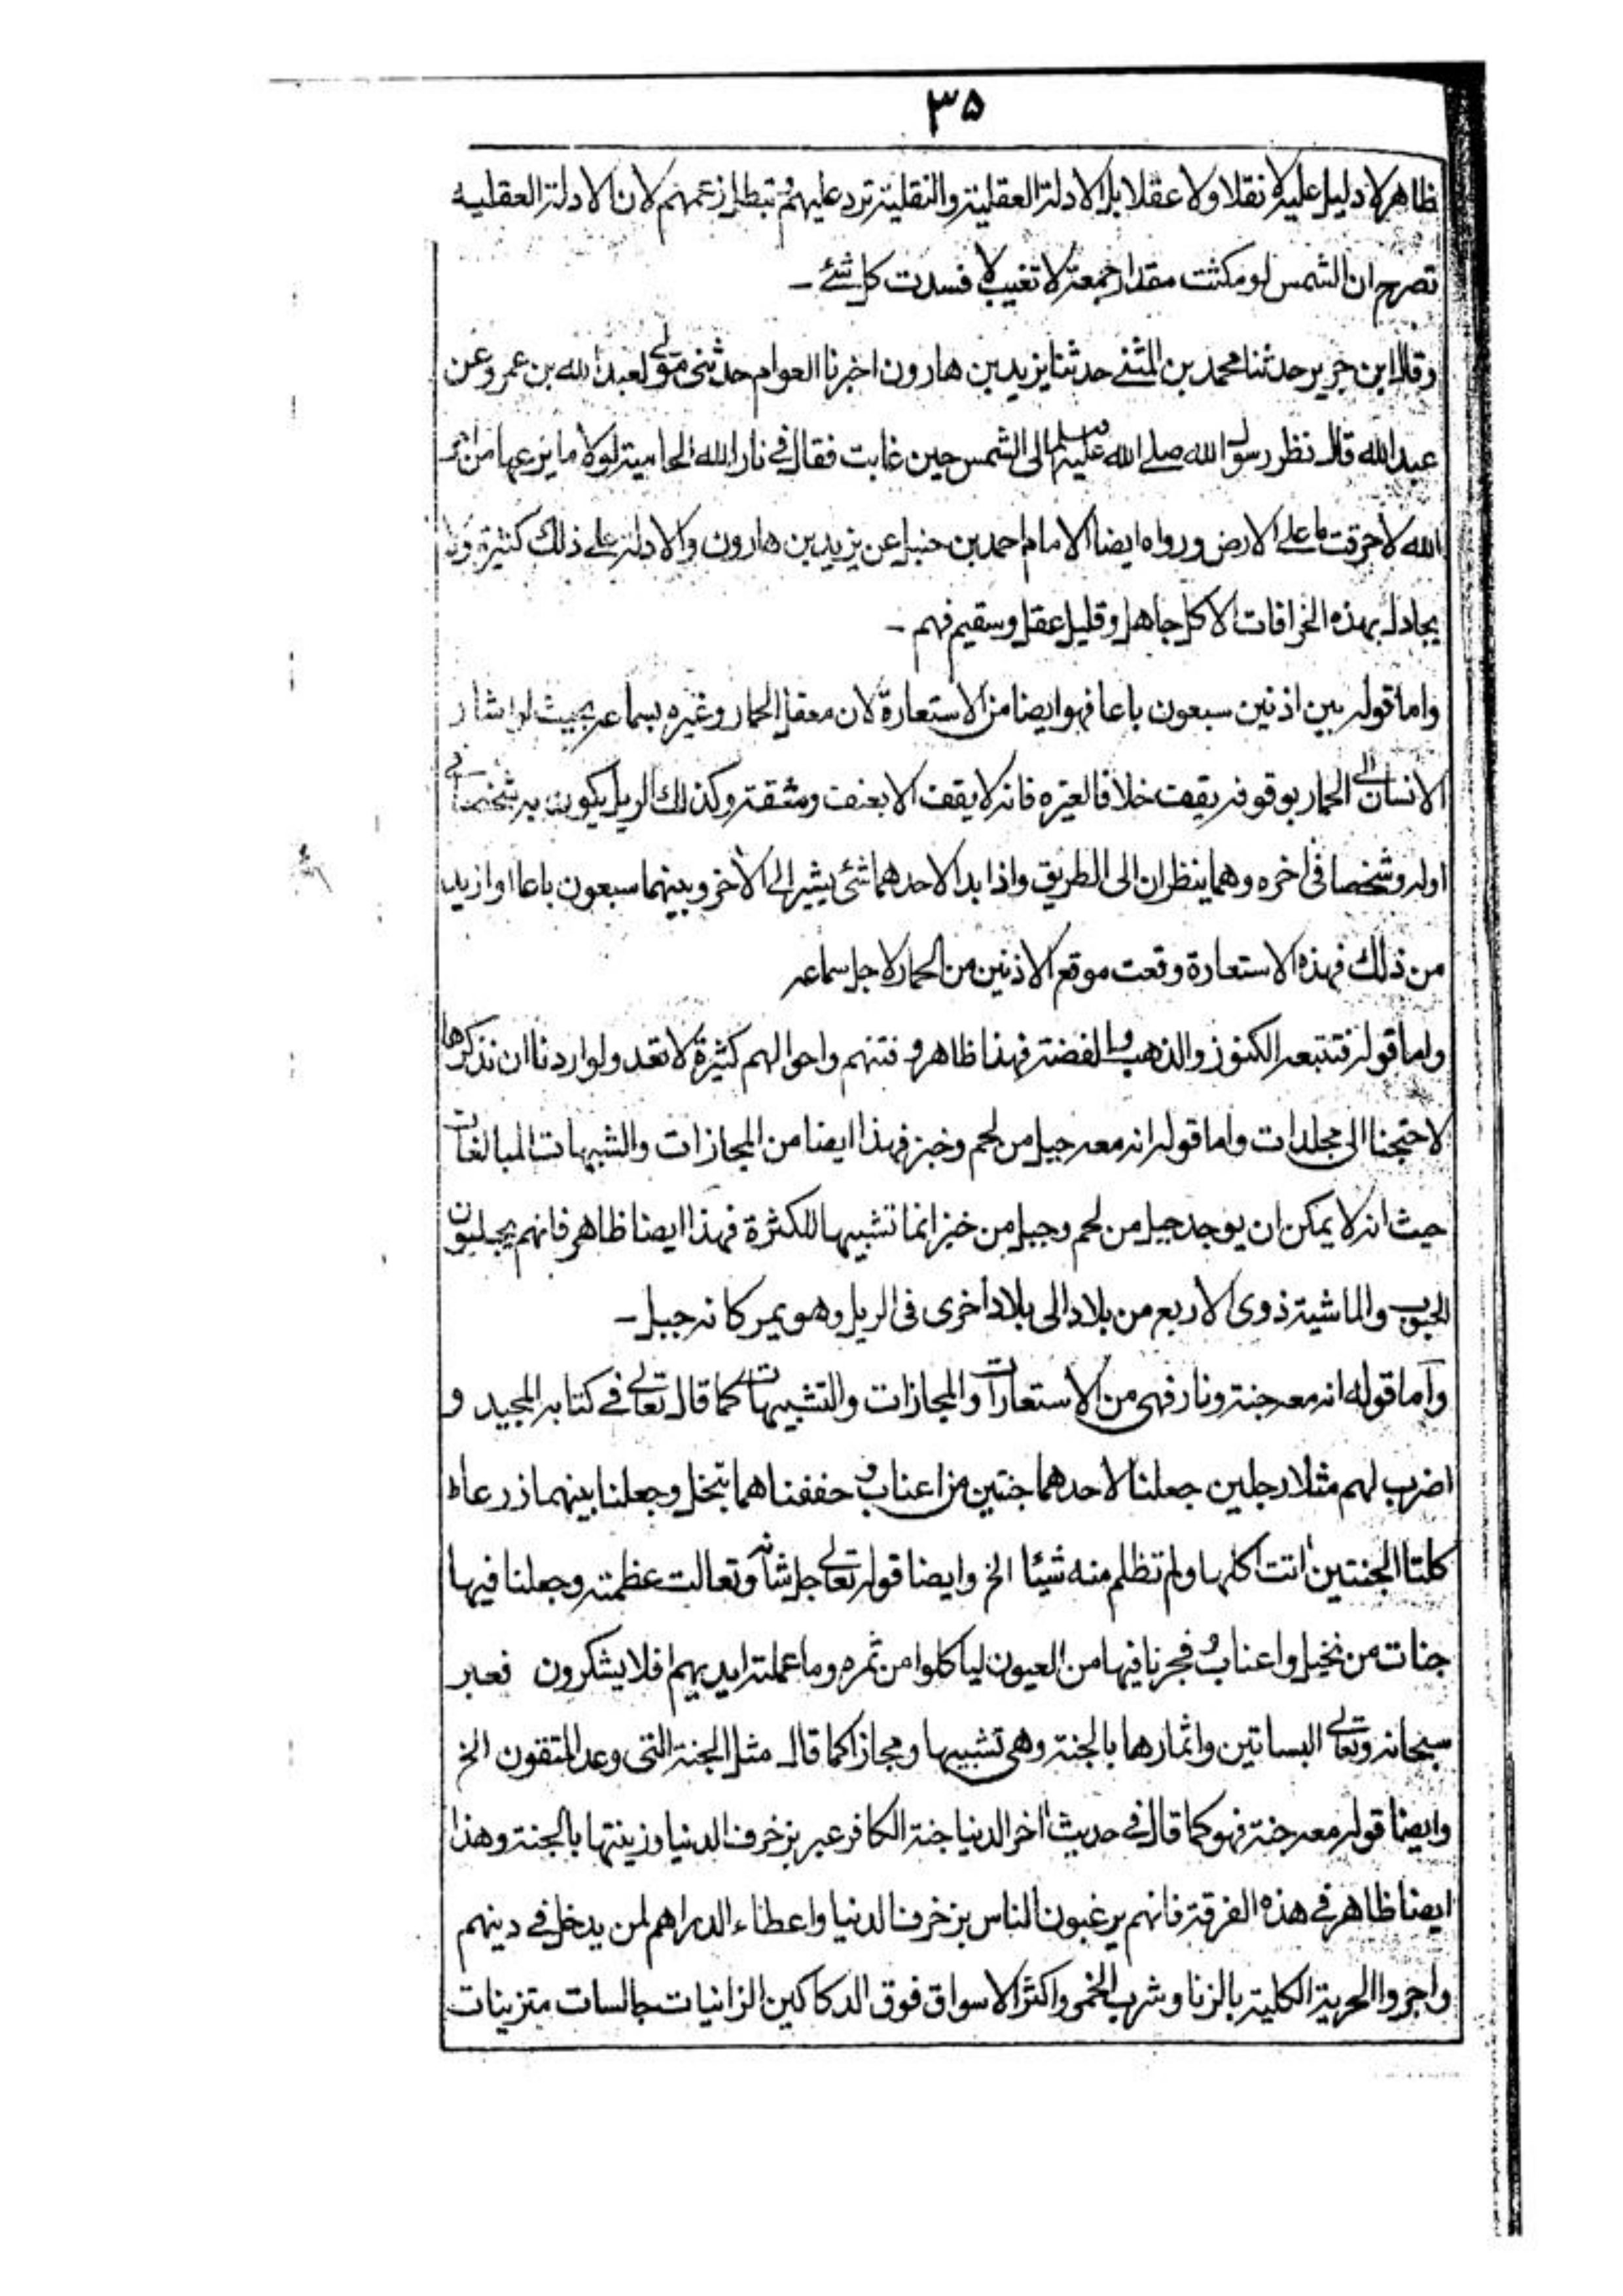 ٣۵
ظاهر لا دليل عليه لا نقلا ولا عقلا بل الادلة العقلية والنقلية ترد عليهم و تبطل زعمهم لان الادلة العقليه
تصرح ان الشمس لو مكثت مقدار جمعة لا تغيب لا فسدت كل شئ ـ
وقال ابن جرير حدثنا محمد بن المثنى حدثنا يزيد بن هارون اخبرنا العوام حدثنى مولى لعبد الله بن عمرو عن
عبد الله قال نظر رسول الله صلى الله عليه وسلم الى الشمس حين غابت فقال فى نار الله الحامية لولا ما يزعها من امر
الله لاحرقت ما على الارض ورواه ايضا الامام احمد بن حنبل عن يزيد بن هارون والادلة على ذلك كثيرة وما
يجادل بهذه الخرافات الا كل جاهل وقليل عقل وسقيم فهم ـ
واما قوله بين اذنين سبعون باعا فهو ايضا من الاستعارة لان معقل الحمار وغيره بسماعه بحيث لو اشار
الانسان الى الحمار بوقوفه يقف خلافا لغيره فانه لا يقف الا بعنف ومشقة وكذلك الريل يكون به شخصا فى
اوله وشخصا فى اخره وهما ينظران الى الطريق واذا بدا لاحدهما شئ يشير الى الاخر وبينهما سبعون باعا او ازيد
من ذلك فهذه الاستعارة وقعت موقع الاذنين من الحمار لاجل سماعه
واما قوله فتتبعه الكنوز والذهب والفضة فهذا ظاهر و فتنهم واحوالهم كثيرة لا تعد ولو اردنا ان نذكرها
لاحتجنا الى مجلدات واما قوله انه معه جبل من لحم وخبز فهذا ايضا من المجازات والشبيهات المبالغات
حيث انه لا يمكن ان يوجد جبل من لحم وجبل من خبز انما تشبيها للكثرة فهذا ايضا ظاهر فانهم يجلبون
الحبوب والماشية ذوى الاربع من بلاد الى بلاد اخرى فى الريل وهو يمر كانه جبل ـ
وأما قوله انه معه جنة ونار فهى من الاستعارات والمجازات والتشبيهات كما قال تعالى فى كتابه المجيد و
اضرب لهم مثلا رجلين جعلنا لاحدهما جنتين من اعناب و حففناهما بنخل وجعلنا بينهما زرعاه
كلتا الجنتين اتت اكلها ولم تظلم منه شيئا الخ وايضا قوله تعالى جل شانه وتعالت عظمته وجعلنا فيها
جنات من نخيل واعناب و فجرنا فيها من العيون لياكلوا من ثمره وما عملته ايديهم افلا يشكرون فعبر
سبحانه وتعالى البساتين واثمارها بالجنة وهى تشبيها ومجازا كما قال مثل الجنة التى وعد المتقون الخ
وايضا قوله معه جنة فهو كما قال فى حديث اخر الدنيا جنة الكافر عبر بزخرف الدنيا وزينتها بالجنة وهذا
ايضا ظاهر فى هذه الفرقة فانهم يرغبون الناس بزخرف الدنيا واعطاء الدراهم لمن يدخل فى دينهم
واجروا الحرية الكلية بالزنا وشرب الخمر واكثر الاسواق فوق الدكاكين الزانيات جالسات متزينات